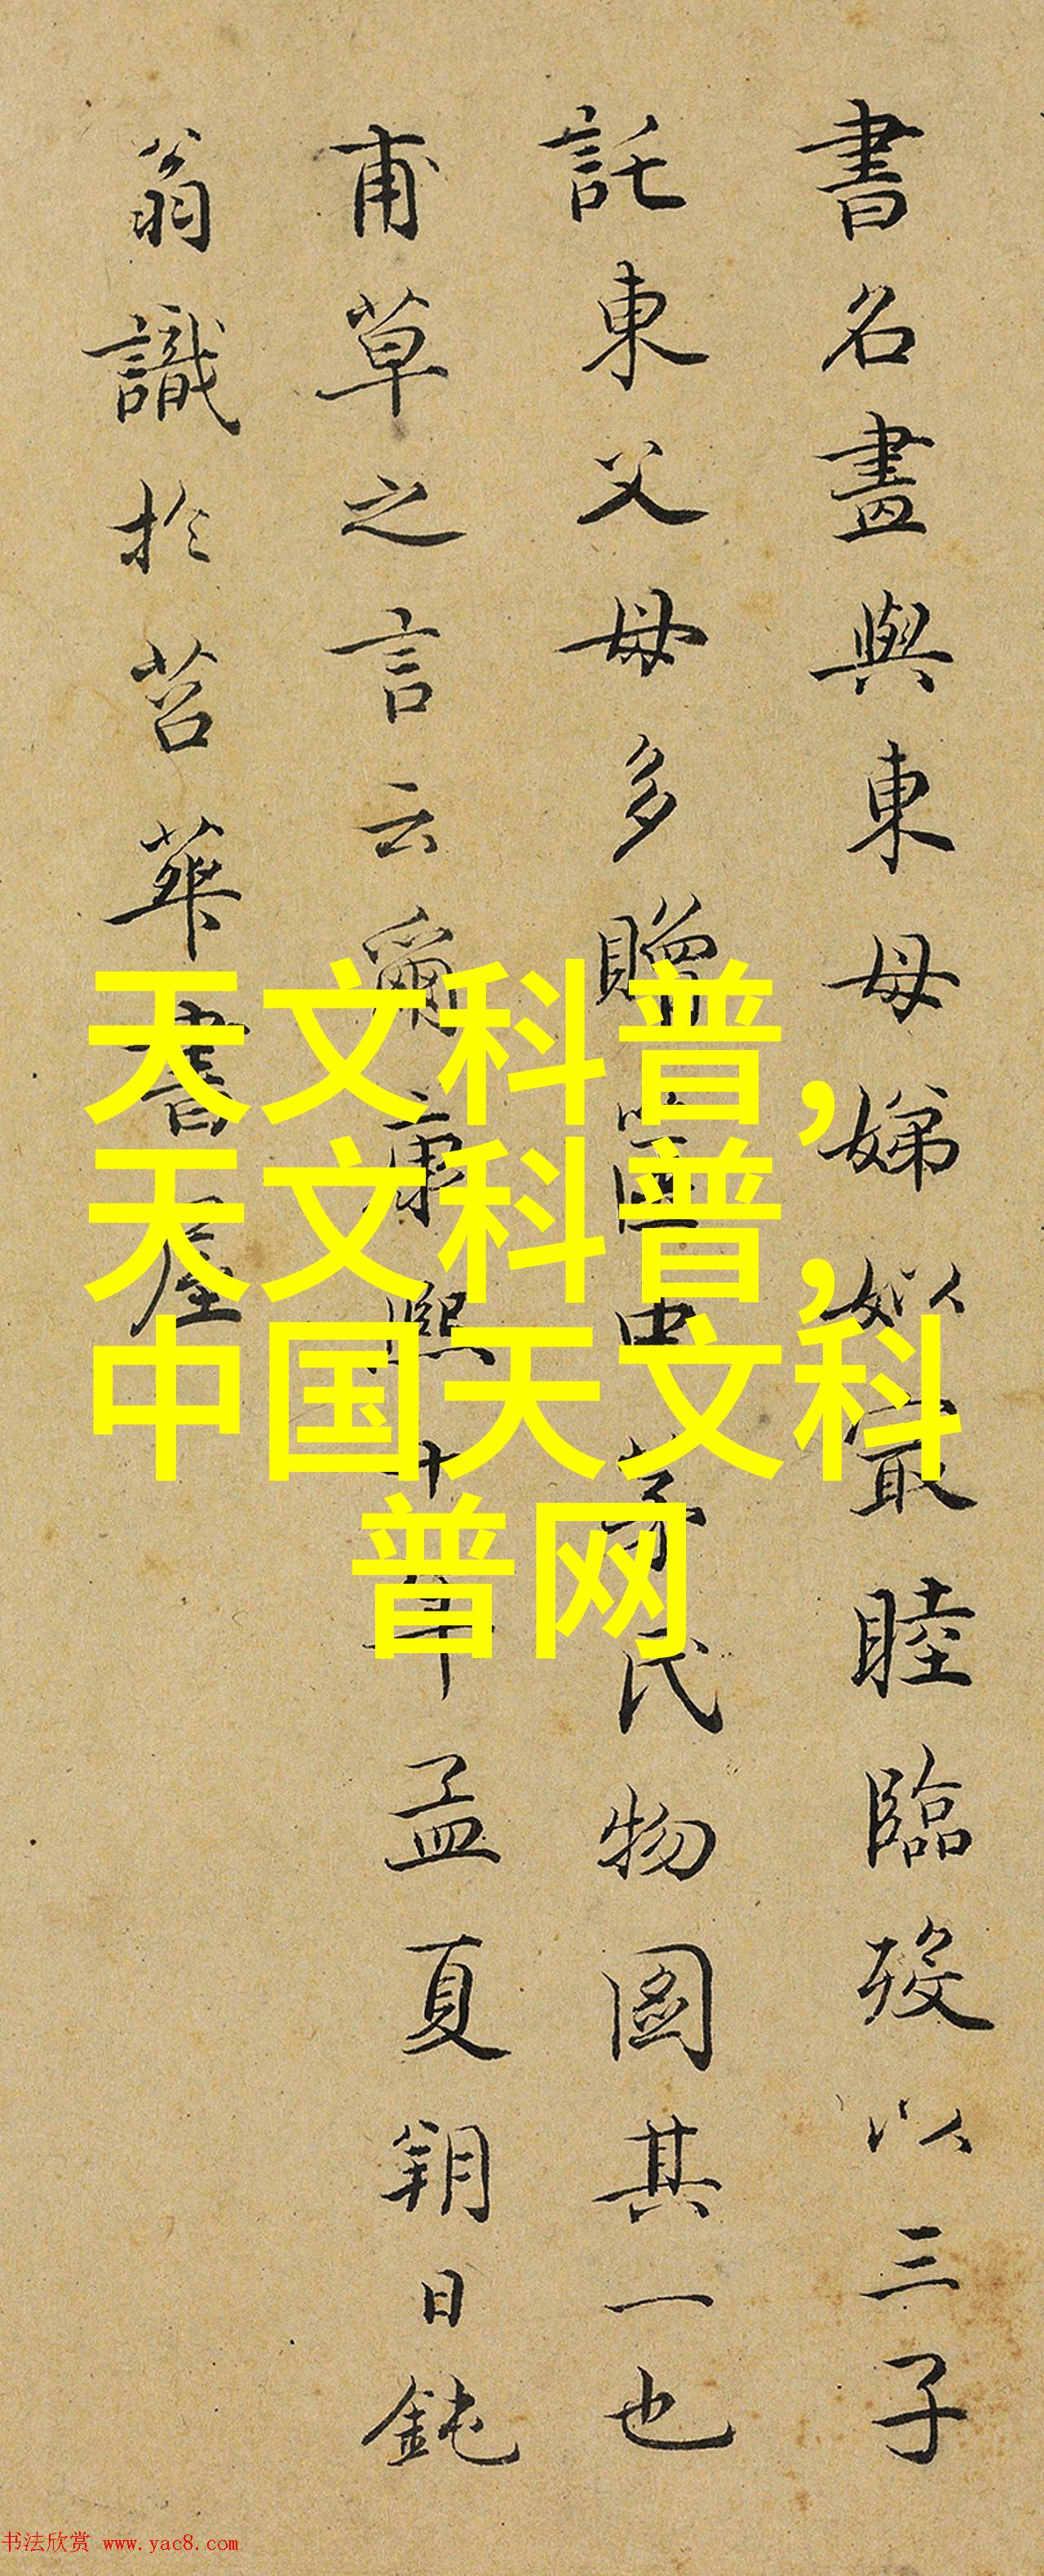 書名畫與東母娣姒最睦臨歿以三子
託東父母多贈 中 氏物圖其一也
甫草之言云爾康熙十年孟夏朔日鈍
翁識於苕華書屋
天文科普,
天文科普,
中国天文科
普网
书法欣赏 www.yac8.com